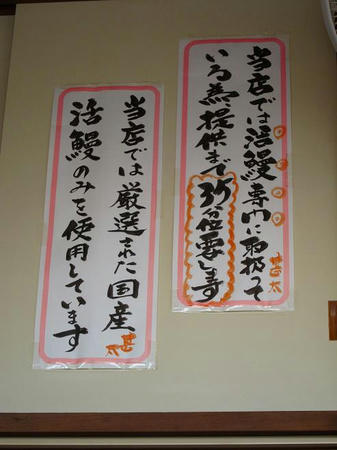 当店では活鰻専門に取扱って
いる為、提供まで35分位要します
甚太
当店では厳選された国産
活鰻のみを使用しています
甚太